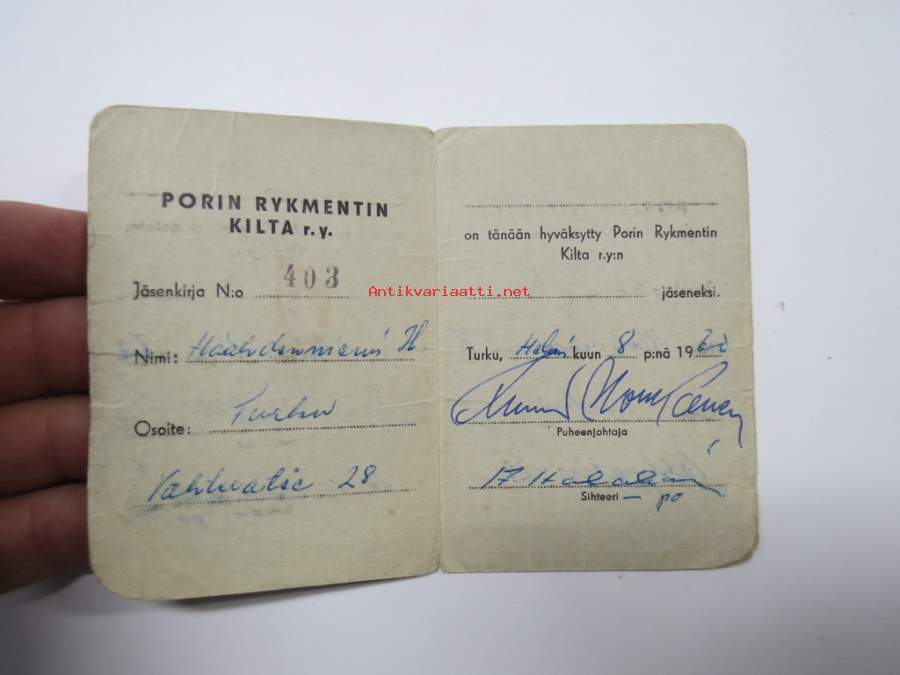 PORIN RYKMENTIN
KILTA r.y.
Jäsenkirja N:o 403
Nimi: H
Osoite: Turku
28
on tänään hyväksytty Porin Rykmentin
Kilta r.y:n
jäseneksi.
Turku, Helmi kuun 8 p:nä 19
Puheenjohtaja
Sihteeri
po
Antikvariaatti.net